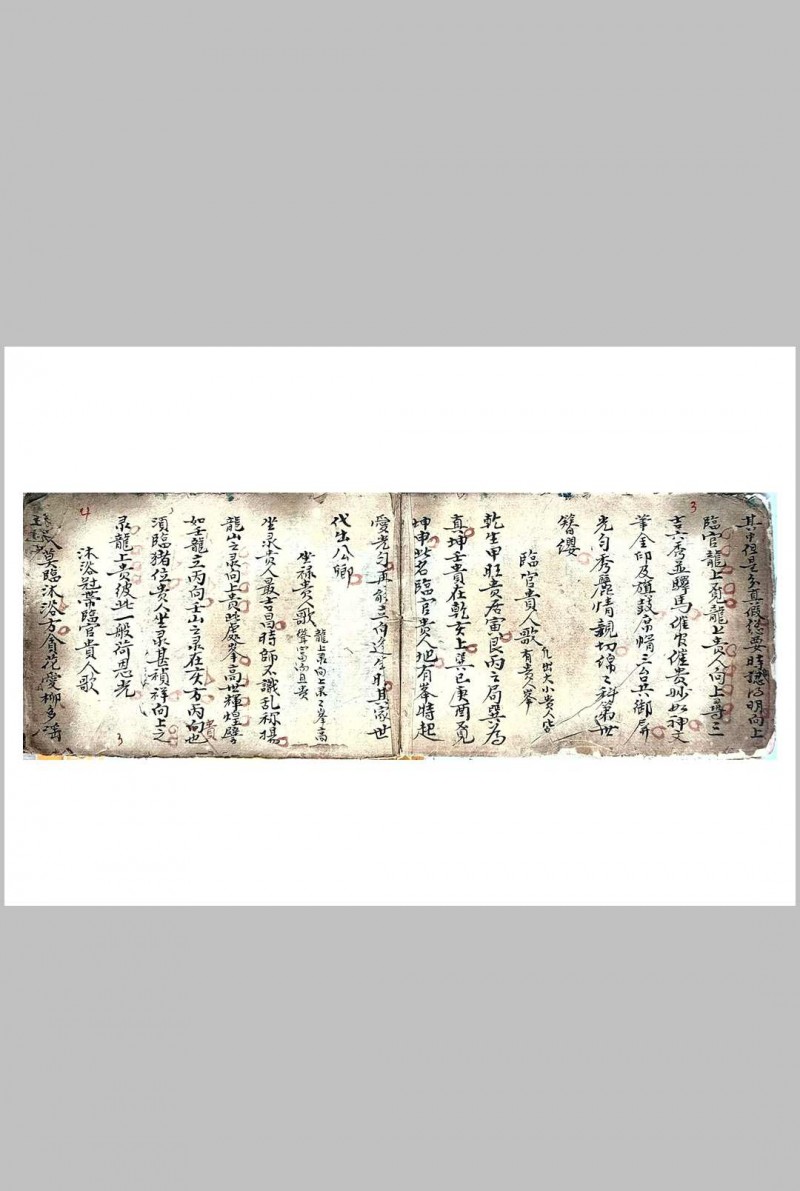 3
其中但是分真假總要時讓得明向上
臨官龍上官龍上貴人向上尊三
吉六秀並驛馬催官催貴妙如神文
筆金印及旗鼓席帽三台共御屏
光句秀麗情親切綿綿科第世
簪纓
臨官貴人歌
有貴人峯
凡出大小貴人皆
乾生甲旺貴居寅艮丙之局巽為
真坤壬貴在乾亥上巽已庚酉見
坤申此名臨官貴人地有峯特起
愛光句再能三向逆生旺其家世
代出公卿
坐禄貴人歌
龍上彔向上彔之峯高
聳當為且貴
坐彔貴人最吉昌時師不識乱称揚
龍山之彔向上貴此處峯高世輝煌譬
如壬龍立丙向壬山之彔在亥方丙向也
貴
須臨猪位貴人坐彔甚禎祥向上之
彔龍上貴彼此一般荷恩光
3
沐浴冠帶臨官貴人歌
4
人莫臨沐浴方貪花愛柳多淫